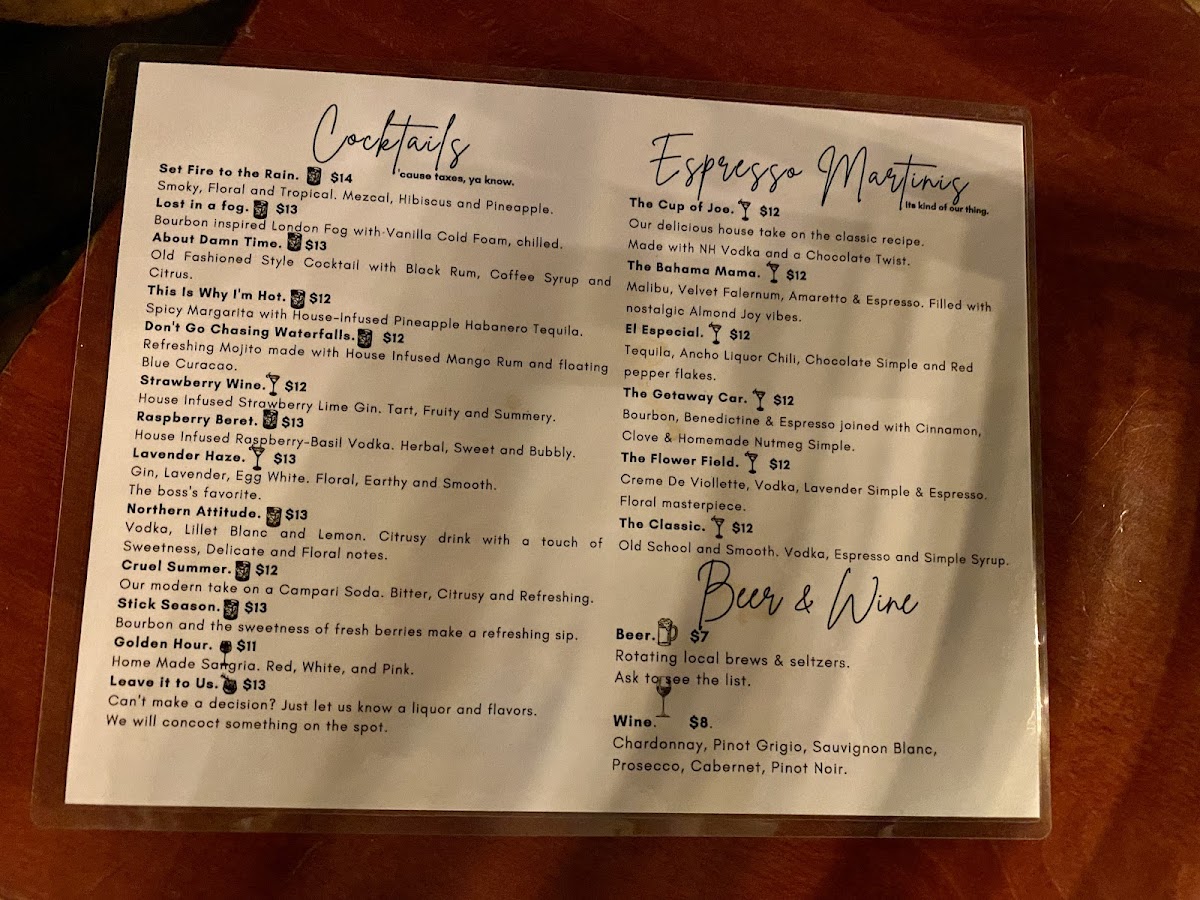 Cocktails
'cause taxes, ya know.
Set Fire to the Rain. $14
Smoky, Floral and Tropical. Mezcal, Hibiscus and Pineapple.
Lost in a fog. $13
Bourbon inspired London Fog with Vanilla Cold Foam, chilled.
About Damn Time. $13
Old Fashioned Style Cocktail with Black Rum, Coffee Syrup and
Citrus.
This Is Why I'm Hot. $12
Spicy Margarita with House-Infused Pineapple Habanero Tequila.
Don't Go Chasing Waterfalls. $12
Refreshing Mojito made with House Infused Mango Rum and floating
Blue Curacao.
Strawberry Wine. $12
House Infused Strawberry Lime Gin. Tart, Fruity and Summery.
Raspberry Beret. $13
House Infused Raspberry-Basil Vodka. Herbal, Sweet and Bubbly.
Lavender Haze. $13
Gin, Lavender, Egg White. Floral, Earthy and Smooth.
The boss's favorite.
Northern Attitude. $13
Vodka, Lillet Blanc and Lemon. Citrusy drink with a touch of
Sweetness, Delicate and Floral notes.
Cruel Summer. $12
Our modern take on a Campari Soda. Bitter, Citrusy and Refreshing.
Stick Season. $13
Bourbon and the sweetness of fresh berries make a refreshing sip.
Golden Hour. $11
Home Made Sangria. Red, White, and Pink.
Leave it to Us. $13
Can't make a decision? Just let us know a liquor and flavors.
We will concoct something on the spot.
Espresso Martinis
Its kind of our thing.
The Cup of Joe. $12
Our delicious house take on the classic recipe.
Made with NH Vodka and a Chocolate Twist.
The Bahama Mama. $12
Malibu, Velvet Falernum, Amaretto & Espresso. Filled with
nostalgic Almond Joy vibes.
El Especial. $12
Tequila, Ancho Liquor Chili, Chocolate Simple and Red
pepper flakes.
The Getaway Car. $12
Bourbon, Benedictine & Espresso joined with Cinnamon,
Clove & Homemade Nutmeg Simple.
The Flower Field. $12
Creme De Viollette, Vodka, Lavender Simple & Espresso.
Floral masterpiece.
The Classic. $12
Old School and Smooth. Vodka, Espresso and Simple Syrup.
Beer & Wine
Beer. $7
Rotating local brews & seltzers.
Ask to see the list.
Wine. $8.
Chardonnay, Pinot Grigio, Sauvignon Blanc,
Prosecco, Cabernet, Pinot Noir.